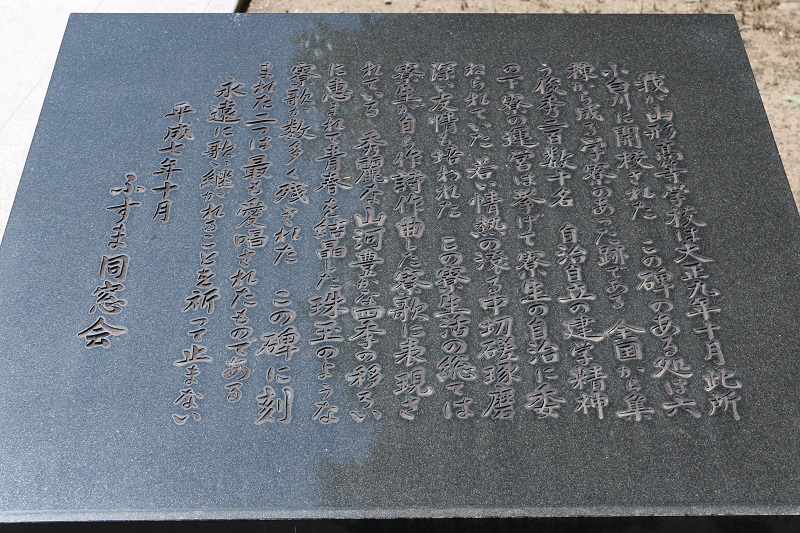 我が山形高等学校は大正九年十月此所
小白川に開校された　この碑のある処は六
棟から成る学寮のあった跡である　全国から集
う俊秀二百数十名　自治自立の建学精神
の下寮の運営は挙げて寮生の自治に委
ねられていた　若い情熱の滾る中切磋琢磨
深い友情も培われた　この寮生活の総ては
寮生が自ら作詩作曲した寮歌に表現さ
れている　秀麗な山河豊かな四季の移ろい
に恵まれて青春を結晶した珠玉のような
寮歌が数多く残された　この碑に刻
まれた二つは最も愛唱されたものである
永遠に歌い継がれることを祈って止まない
平成七年十月
ふすま同窓会